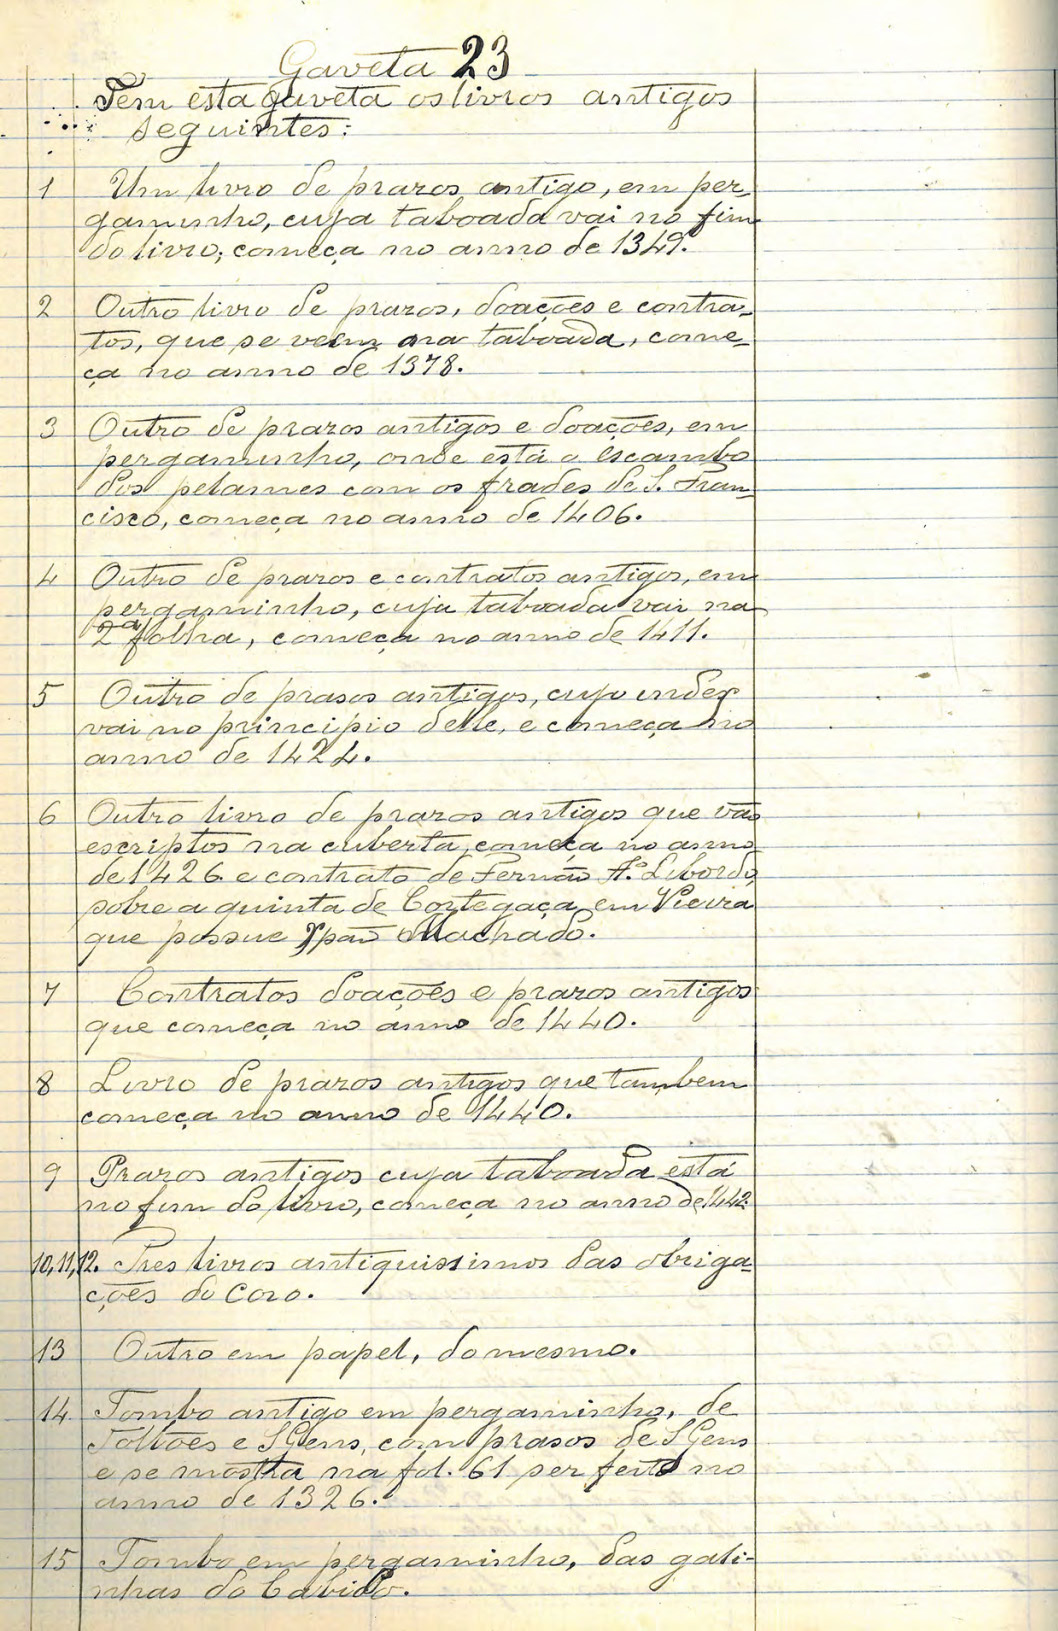 Gaveta 23
Tem esta gaveta os livros antigos
seguintes:
1 Um livro de prazos antigo, em per-
gaminho, cuja taboada vai no fim
do livro; começa no anno de 1349.
2 Outro livro de prazos, doações e contra-
tos, que se veem na taboada, come-
ça no anno de 1378.
3 Outro de prazos antigos e doações, em
pergaminho, onde está o escambo
dos pelames com os frades de S. Fran-
cisco, começa no anno de 1406.
4 Outro de prazos e contratos antigos, em
pergaminho, cuja taboada vai na
2ª folha, começa no anno de 1411.
5 Outro de prasos antigos, cujo index
vai no principio delle, e começa no
anno de 1424.
6 Outro livro de prazos antigos que vão
escriptos na cuberta, começa no anno
de 1426 e contrato de Fernão
sobre a quinta de Cortegaça em Vieira
que possue Xpão Machado.
7 Contratos doações e prazos antigos
que começa no anno de 1440.
8 Livro de prazos antigos que tambem
começa no anno de 1440.
9 Prazos antigos cuja taboada está
no fim do livro, começa no anno de 1442
10, 11, 12. Tres livros antiquissimos das obriga-
ções do Coro.
13 Outro em papel, do mesmo.
14 Tombo antigo em pergaminho, de
e S Gens, com prasos de S Gens
e se mostra na fol. 61 ser feito no
anno de 1326.
15 Tombo em pergaminho, das gali-
nhas do Cabido.